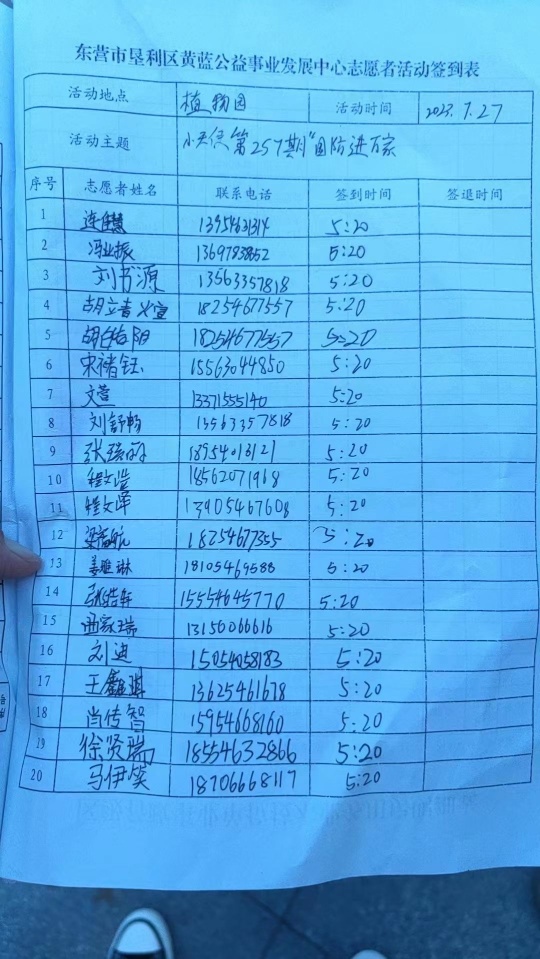 东营市垦利区黄蓝公益事业发展中心志愿者活动签到表
活动地点 植物园 活动时间 2023.7.27
活动主题 第257期"国防进万家
序号 志愿者姓名 联系电话 签到时间 签退时间
1 5:20
2 冯业振 5:20
3 刘书源 13563357818 5:20
4 18254677557 5:20
5 18254677557 5:20
6 宋褚钰 15563044850 5:20
7 文萱 13371555140 5:20
8 刘舒畅 13563357818 5:20
9 18954013121 5:20
10 18562071968 5:20
11 13905467608 5:20
12 18254677355 5:20
13 姜雅琳 18105469588 5:20
14 15554645770 5:20
15 曲家瑞 5:20
16 刘迪 15054058183 5:20
17 13625461678 5:20
18 肖传智 15954668160 5:20
19 徐贤瑞 18554632866 5:20
20 马伊笑 18706668117 5:20